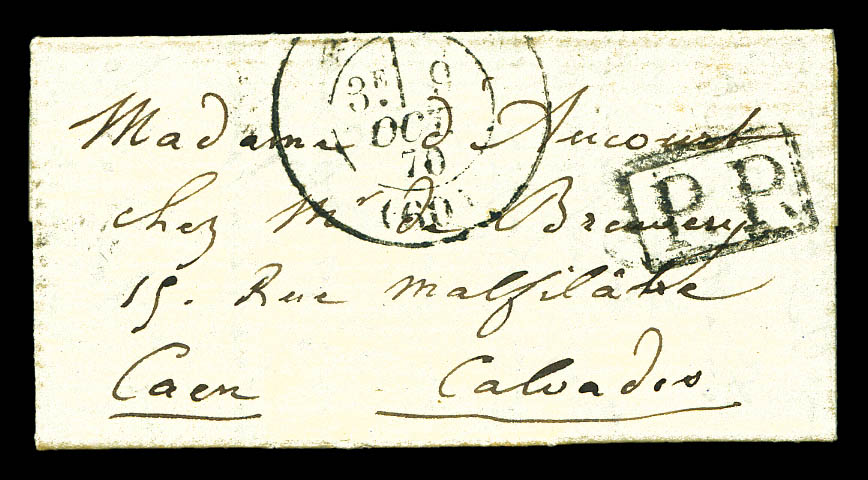 3E 9
OCT
70
(60)
P.P.
Madame d'Aucourt
chez Mr de Bremery
15. Rue Malfilâtre
Caen Calvados